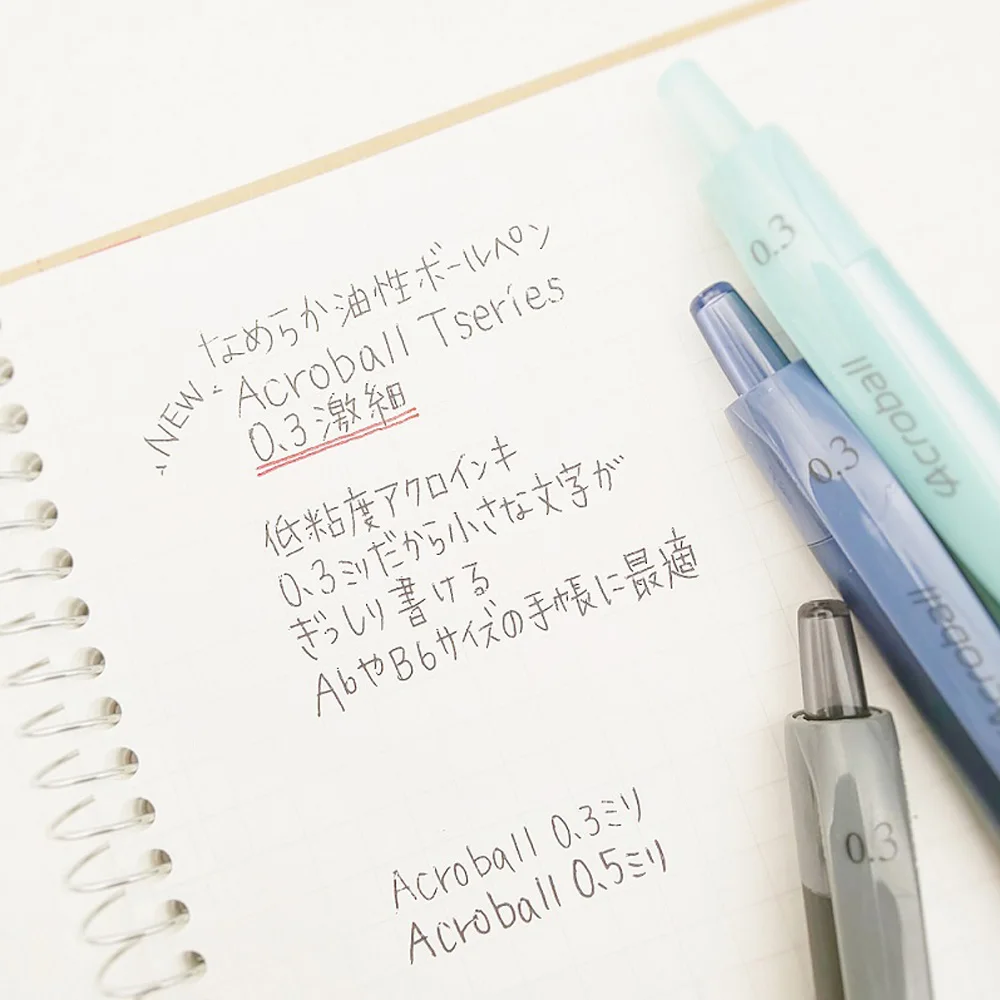 なめらか油性ボールペン
NEW
Acroball Tseries
0.3激細
低粘度アクロインキ
0.3ミリだから小さな文字が
ぎっしり書ける
A6やB6サイズの手帳に最適
Acroball 0.3ミリ
Acroball 0.5ミリ
0.3
Acroball
0.3
Acroball
0.3